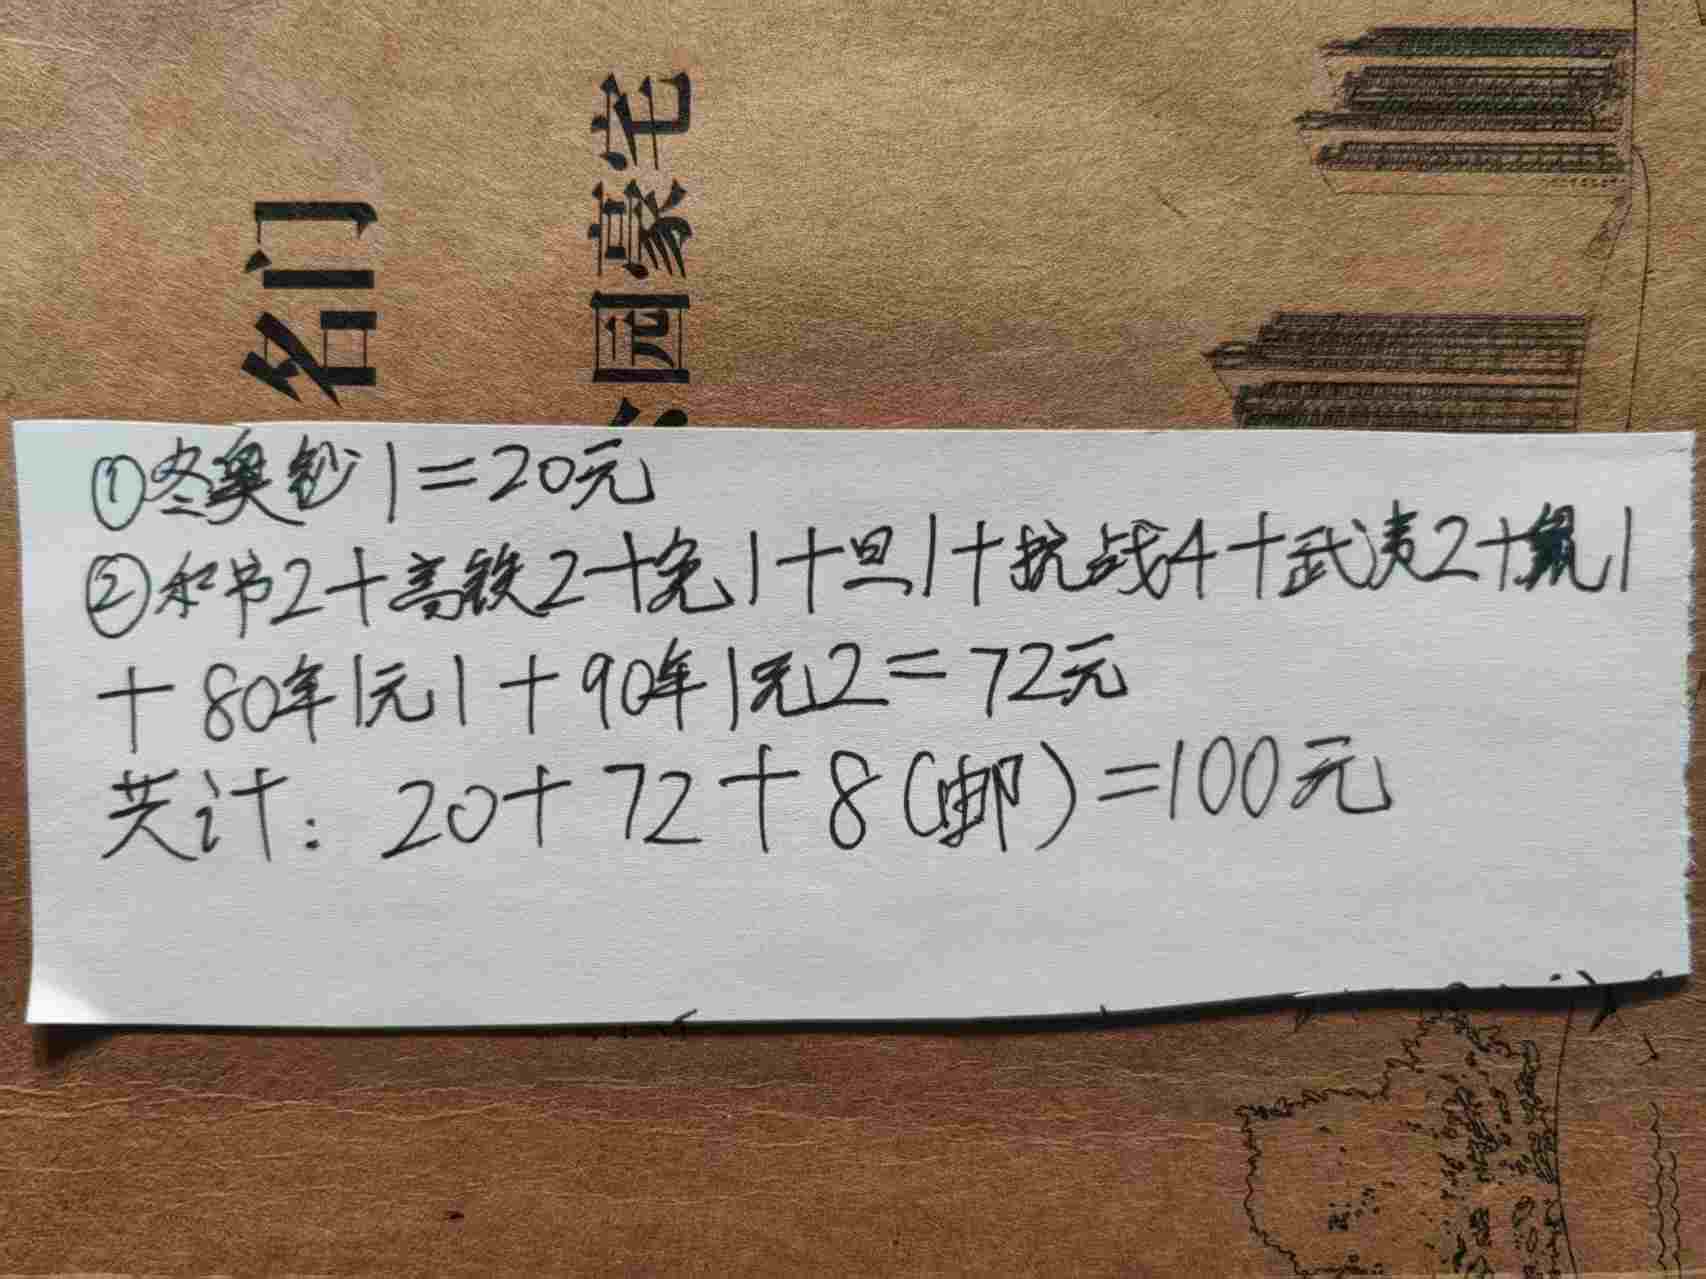 名们
公园豪宅
①冬奥钞1=20元
②和书2+高铁2+兔1+旦1+抗战4+武夷2+鼠1
+80年1元1+90年1元2=72元
共计:20+72+8(邮)=100元